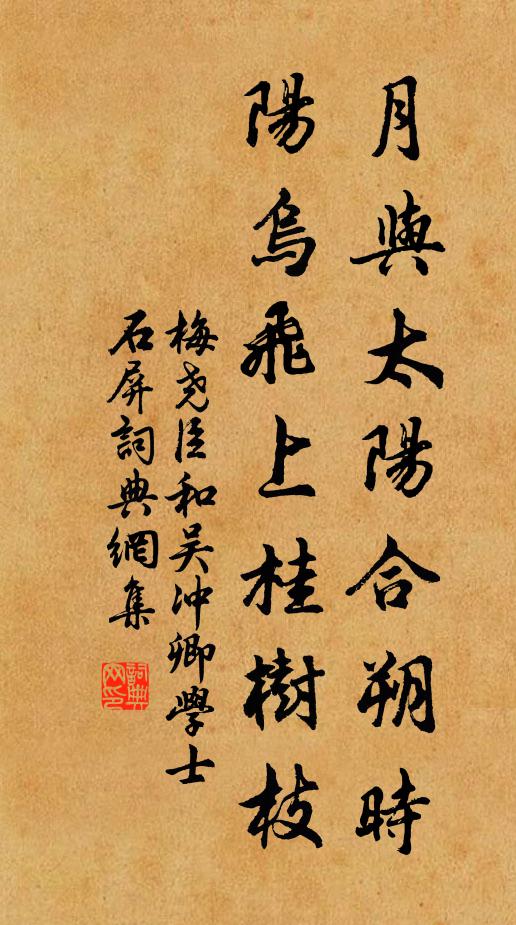 月與太陽合朔時
陽烏飛上桂樹枝
梅堯臣和吴沖卿學士
石屏詞典網集
詞典網印